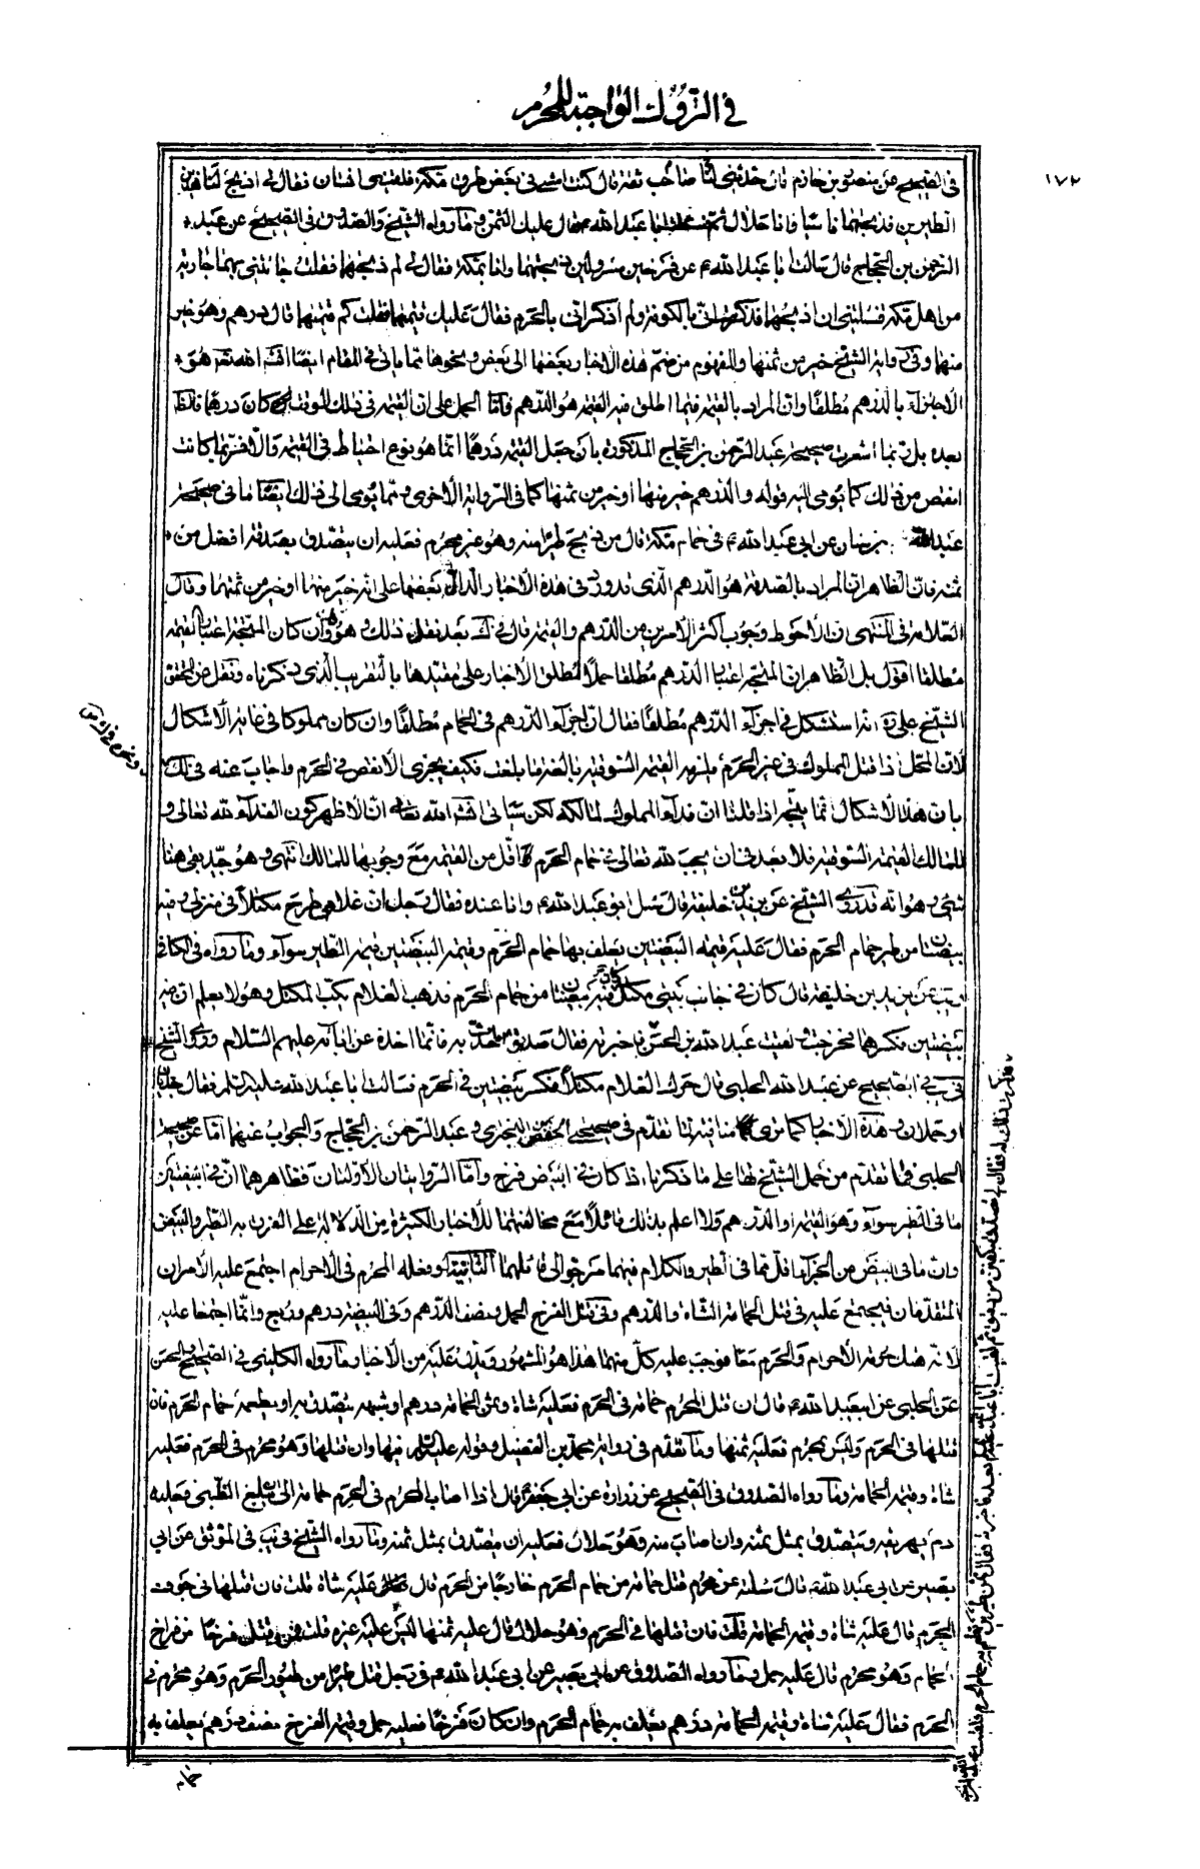 في التروك الواجبة للمحرم
١٧٢
في الصحيح عن منصور بن حازم قال حدثني صاحب لنا ثقة قال كنت امشي في بعض طرق مكة فلقيني انسان فقال لي اذبح لنا هذين
الطيرين فذبحتهما ناسيا وانا حلال ثم سئلت ابا عبد الله ع فقال عليك الثمن وما رواه الشيخ والصدوق في الصحيح عن عبد
الرحمن بن الحجاج قال سالت ابا عبد الله ع عن فرخين مسرولين ذبحتهما وانا بمكة فقال لي لم ذبحتهما فقلت جائتني بهما جارية
من اهل مكة فسئلتني ان اذبحهما فذكرت اني بالكوفة ولم اذكر اني بالحرم فقال عليك قيمتهما فقلت كم قيمتهما قال درهم وهو خير
منهما وفي رواية الشيخ خير من ثمنها والمفهوم من ضم هذه الاخبار بعضها الى بعض ونحوها مما ياتي في المقام ايضا انشاء الله تعالى هو
الاجتزاء بالدرهم مطلقا وان المراد بالقيمة فيما اطلق فيه القيمة هو الدرهم فاما الحمل على ان القيمة في ذلك الوقت كان درهما فالظاهر
بعده بل ربما اشعرت صحيحة عبد الرحمن بن الحجاج المذكورة بان جعل القيمة درهما انما هو نوع احتياط في القيمة والا فربما كانت
انقص من ذلك كما يومي اليه قوله والدرهم خير منها او خير من ثمنها كما في الرواية الاخرى ومما يومي الى ذلك ايضا ما في صحيحة
عبد الله بن سنان عن ابي عبد الله ع في حمام مكة قال من ذبح طيرا منه وهو غير محرم فعليه ان يتصدق بصدقة افضل من
ثمنه فان الظاهر ان المراد بالصدقة هو الدرهم الذي قد ورد في هذه الاخبار الدال بعضها على انه خير منها او خير من ثمنها وقال
العلامة في المنتهى ان الاحوط وجوب اكثر الامرين من الدرهم والقيمة قال في ك بعد نقل ذلك وهو كذلك وان كان المتجه اعتبار القيمة
مطلقا اقول بل الظاهر ان المتجه اعتبار الدرهم مطلقا حملا لمطلق الاخبار على مقيدها بالتقريب الذي ذكرناه ونقل عن المحقق
الشيخ علي ره انه استشكل في اجزاء الدرهم مطلقا فقال ان اجزاء الدرهم في الحمام مطلقا وان كان مملوكا في غاية الاشكال
لان المحل اذا قتل المملوك في غير الحرم يلزمه القيمة السوقية بالغة ما بلغت فكيف يجزي الانقص في الحرم واجاب عنه في ك
بان هذا الاشكال انما يتجه اذا قلنا ان فداء المملوك لمالكه لكن سياتي انشاء الله تعالى ان الاظهر كون الفداء لله تعالى و
للمالك القيمة السوقية فلا بعد في ان يجب لله تعالى في حمام الحرم اقل من القيمة مع وجوبها للمالك انتهى وهو جيد بقي هنا
شيء وهو انه قد روى الشيخ عن يزيد بن خليفة قال سئل ابو عبد الله ع وانا عنده فقال له رجل ان غلامي طرح مكتلا في منزلي وفيه
بيضتان من طير حمام الحرم فقال عليه قيمة البيضتين يعلف بها حمام الحرم وقيمة البيضتين قيمة الطير سواء وما رواه في الكافي
ويب عن يزيد بن خليفة قال كان في جانب بيتي مكتل كان فيه بيضتان من حمام الحرم فذهب الغلام يكب المكتل وهو لا يعلم ان فيه
بيضتين فكسرهما فخرجت فلقيت عبد الله بن الحسن فاخبرته فقال صدق به فانما اخذه عن ابائه عليهم السلام وروى الشيخ
في يب في الصحيح عن عبيد الله الحلبي قال حرك الغلام مكتلا فكسر بيضتين في الحرم فسالت ابا عبد الله عليه السلام فقال جديان
او حملان وهذه الاخبار كما ترى منافية لما تقدم في صحيحتي حفص بن البختري وعبد الرحمن بن الحجاج والجواب عنهما اما عن صحيحة
الحلبي فبما تقدم من حمل الشيخ لها على ما ذكرنا اذا كان في البيض فرخ واما الروايتان الاولتان فظاهرهما ان في البيضتين
ما في الطير سواء وهو القيمة او الدرهم ولا اعلم بذلك قائلا مع مخالفتهما للاخبار الكثيرة من الدلالة على الفرق بين الطير والبيض
وان ما في البيض من الجزاء اقل مما في الطير والكلام فيهما مرجوا الى قائلهما الثانية لو فعله المحرم في الاحرام اجتمع عليه الامران
المتقدمان فيجتمع عليه في قتل الحمامة الشاة والدرهم وفي قتل الفرخ الحمل ونصف الدرهم وفي البيضة درهم وربع وانما اجتمعا عليه
لانه هتك حرمة الاحرام والحرم معا فوجب عليه كل منهما هذا هو المشهور ويدل عليه من الاخبار ما رواه الكليني في الصحيح او الحسن
عن الحلبي عن ابي عبد الله ع قال ان قتل المحرم حمامة في الحرم فعليه شاة وثمن الحمامة درهم او شبهه يتصدق به او يطعمه حمام الحرم فان
قتلها في الحرم وليس بمحرم فعليه ثمنها وما تقدم في رواية محمد بن الفضيل وقوله عليه السلام فيها وان قتلها وهو محرم في الحرم فعليه
شاة وقيمة الحمامة وما رواه الصدوق في الصحيح عن زرارة عن ابي جعفر ع قال اذا اصاب المحرم في الحرم حمامة الى ان يبلغ الظبي فعليه
دم يهريقه ويتصدق بمثل ثمنه وان اصاب منه وهو حلال فعليه ان يتصدق بمثل ثمنه وما رواه الشيخ في يب في الموثق عن ابي
بصير عن ابي عبد الله ع قال سئلته عن محرم قتل حمامة من حمام الحرم خارجا من الحرم قال عليه شاة قلت فان قتلها في جوف
الحرم قال عليه شاة وقيمة الحمامة قلت فان قتلها في الحرم وهو حلال قال عليه ثمنها ليس عليه غيره قلت فمن قتل فرخا من فراخ
الحمام وهو محرم قال عليه حمل وما رواه الصدوق عن ابي بصير عن ابي عبد الله ع في رجل قتل طيرا من طيور الحرم وهو محرم في
الحرم فقال عليه شاة وقيمة الحمامة درهم يعلف به حمام الحرم وان كان فرخا فعليه حمل وقيمة الفرخ نصف درهم يعلف به
حمام